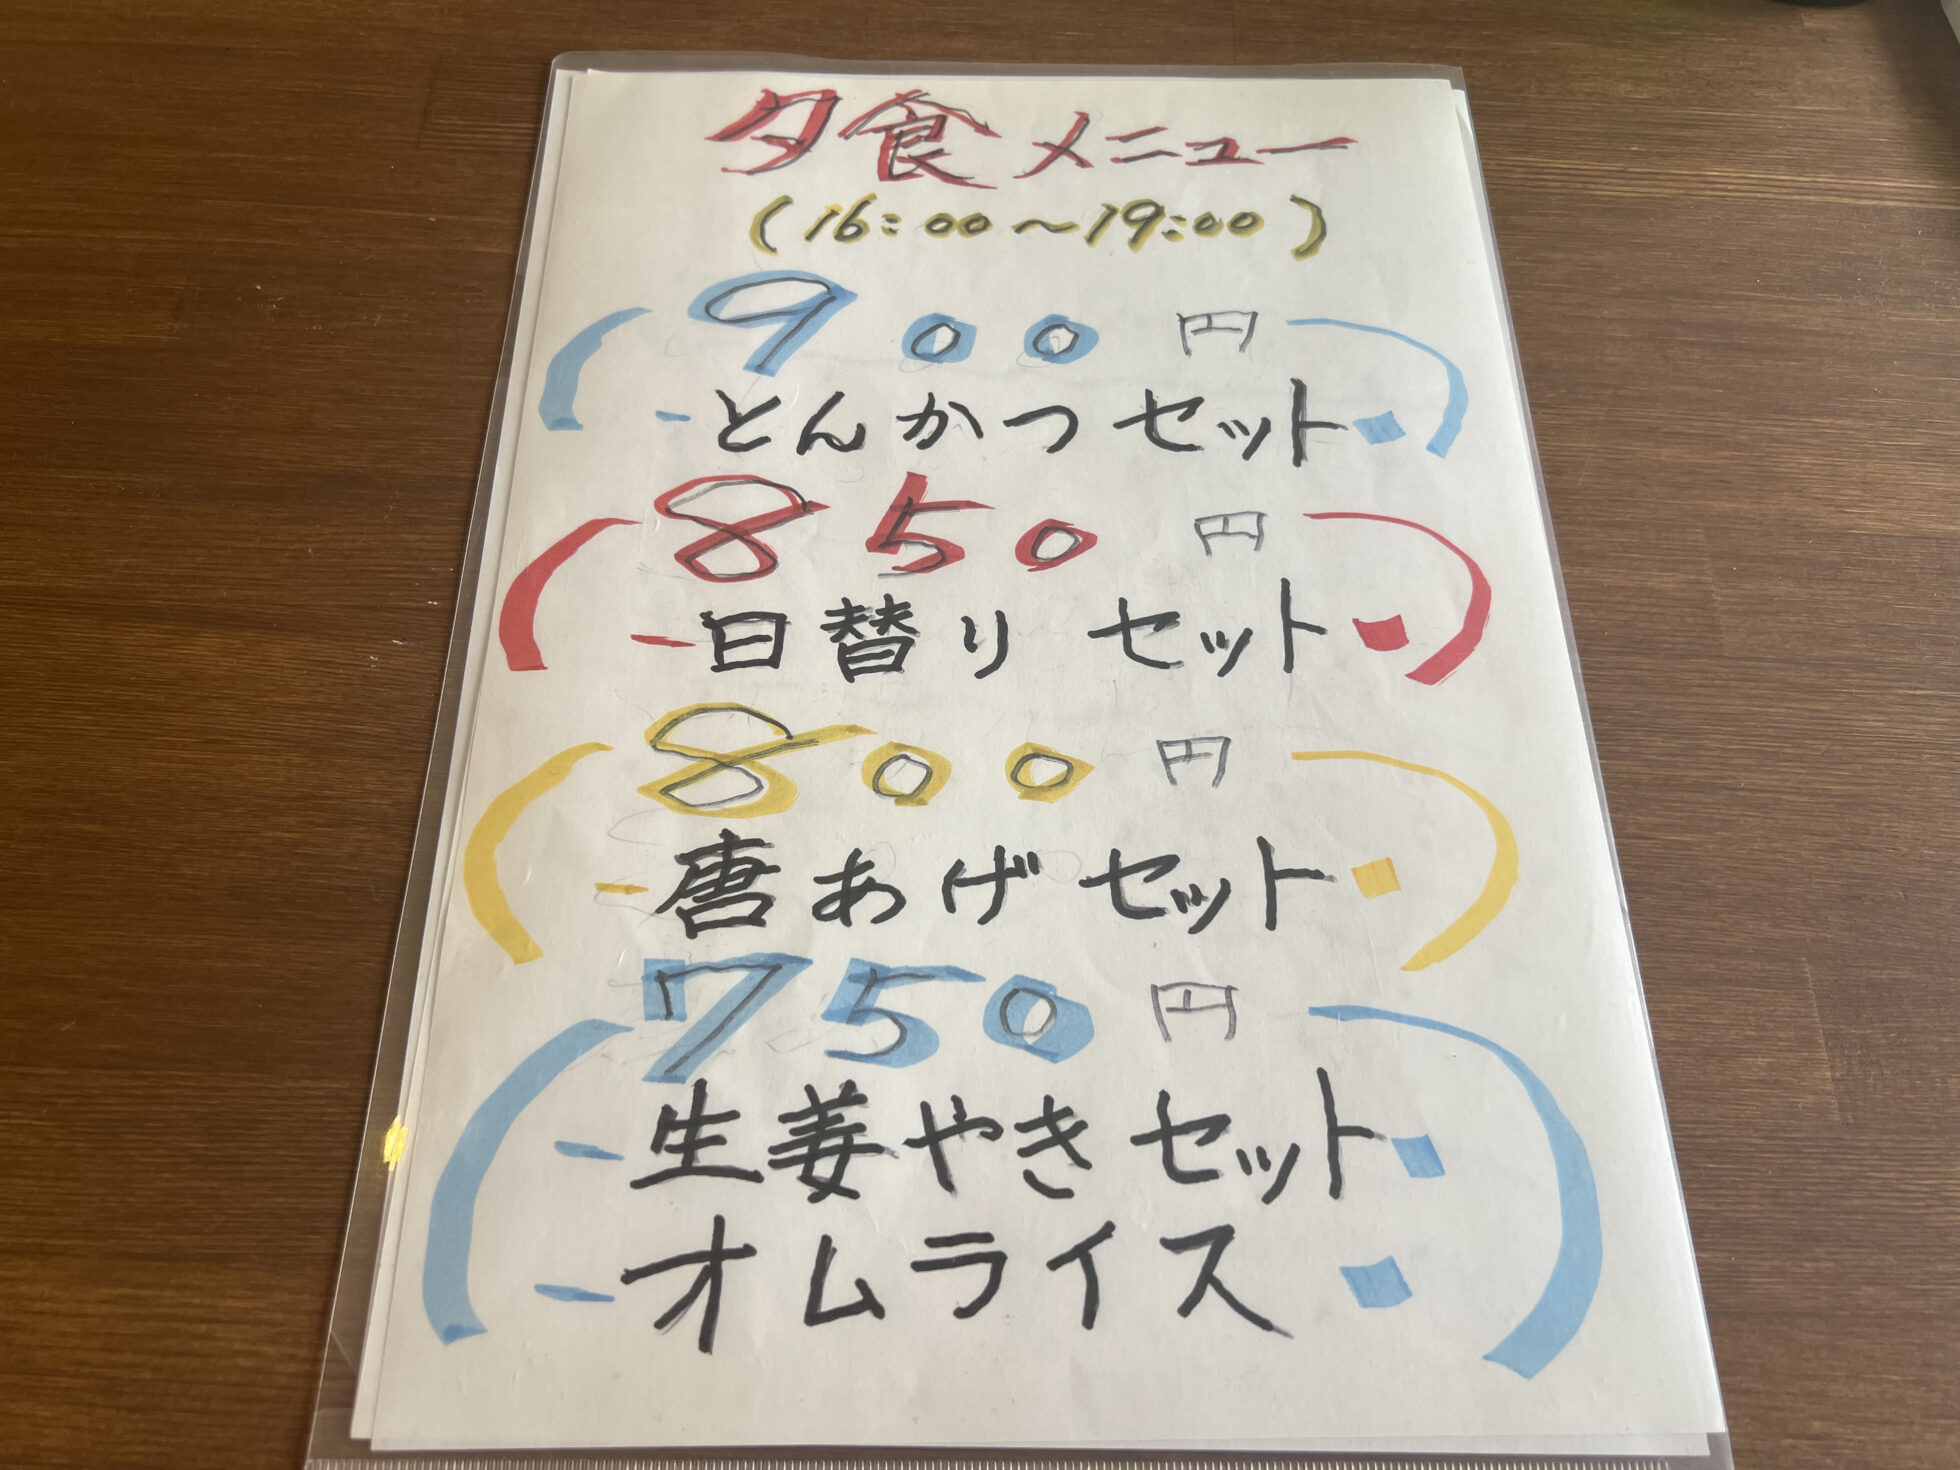 夕食メニュー
(16:00～19:00)
900円
とんかつセット
850円
日替りセット
800円
唐あげセット
750円
生姜やきセット
オムライス